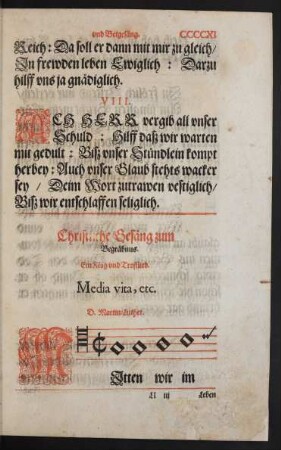 vnd Betgesäng. CCCCXI
Reich: Da soll er dann mit mir zu gleich/
In frewden leben Ewiglich: Darzu
hilff vns ja gnädiglich.
VIII.
ACH HERR vergib all vnser
Schuld: Hilff daß wir warten
mit gedult: Biß vnser Stündlein kompt
herbey: Auch vnser Glaub stehts wacker
sey / Deim Wort zutrawen vestiglich/
Biß wir entschlaffen seliglich.
Gesäng zum
Begräbnus.
Ein Klag vnd Trostlied.
Media vita, etc.
D. Martin Luther.
MItten wir im
Ll iij Leben